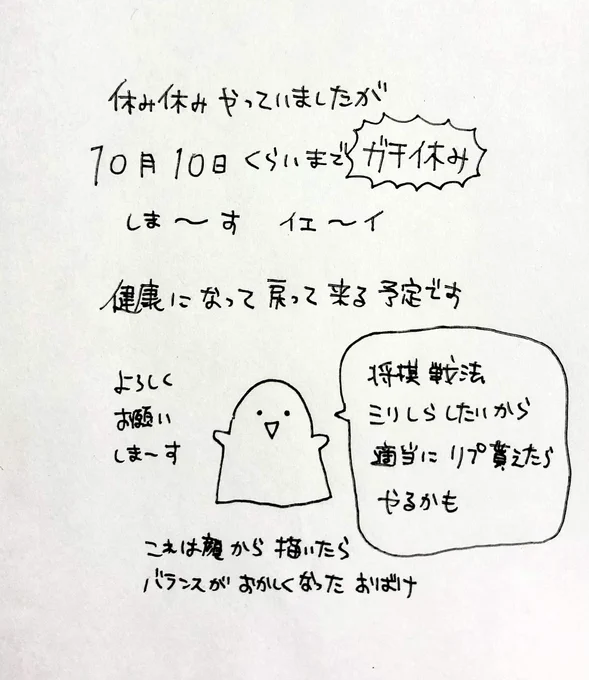 休み休みやっていましたが
10月10日くらいまでガチ休み
しま〜す イエ〜イ
健康になって戻って来る予定です
よろしく
お願い
しま〜す
将棋戦法
ミリしらしたいから
適当にリプ貰えたら
やるかも
これは顔から描いたら
バランスがおかしくなったおばけ